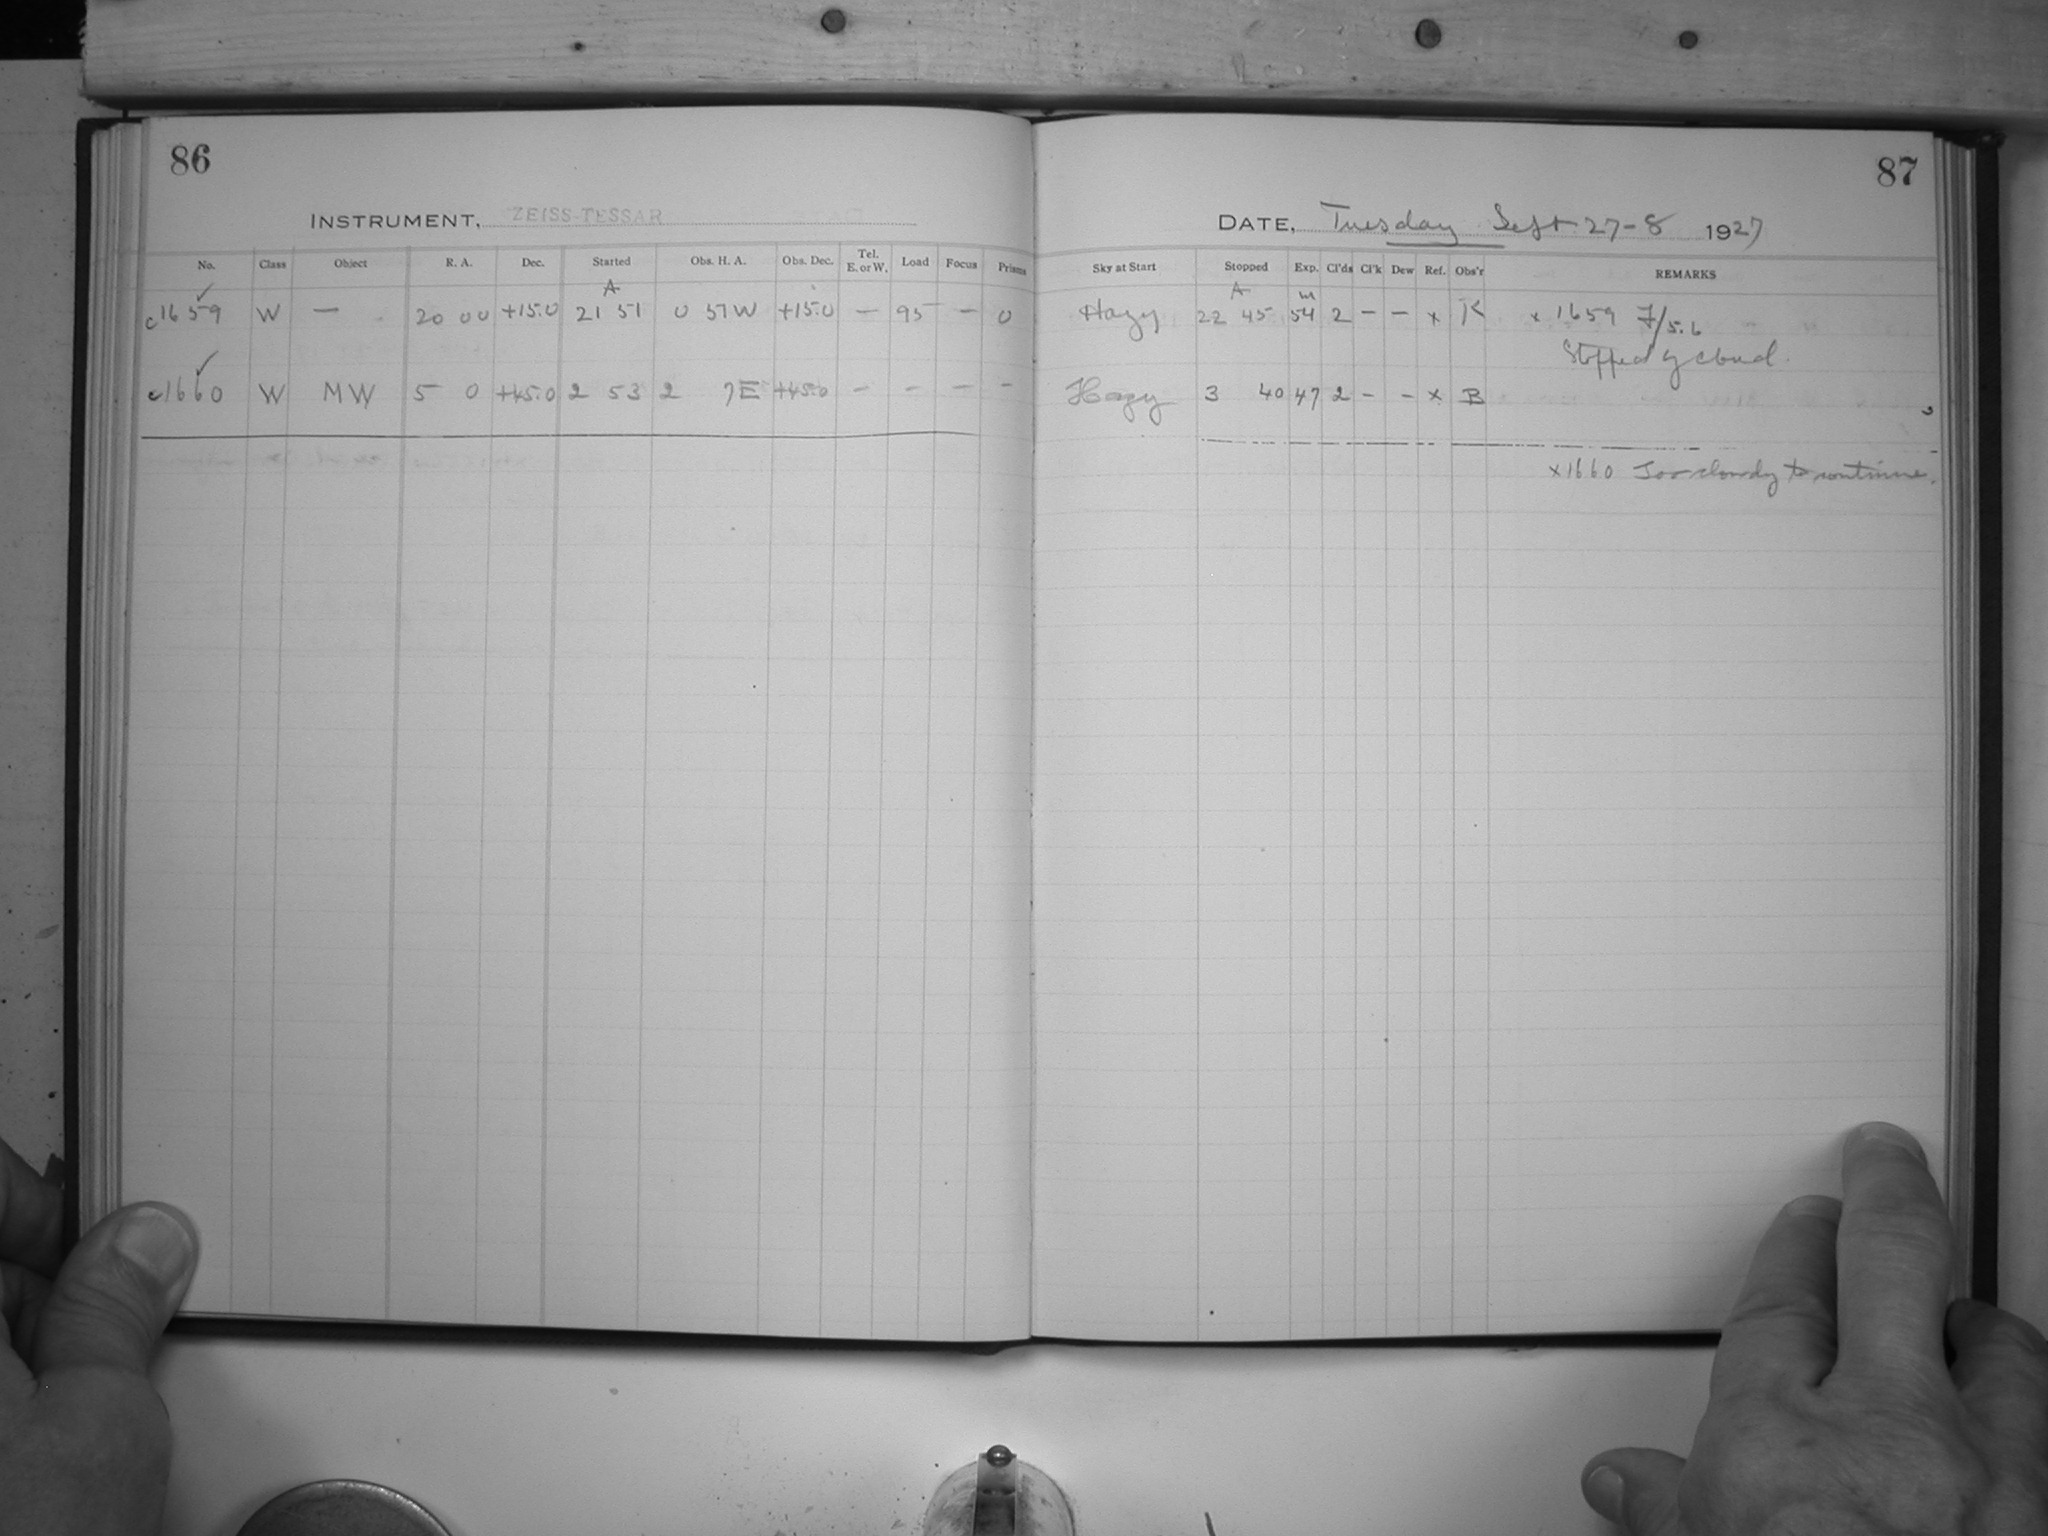 86
INSTRUMENT, ZEISS-TESSAR
No. Class Object R. A. Dec. Started Obs. H. A. Obs. Dec. Tel. E. or W. Load Focus Prisms
A
c1659 W — 20 00 +15.0 21 51 0 57W +15.0 — 95 — 0
c1660 W MW 5 0 +45.0 2 53 2 7E +45.0 — — — —
87
DATE, Tuesday Sept 27-8 1927
Sky at Start Stopped Exp. Cl'ds Cl'k Dew Ref. Obs'r REMARKS
A m
Hazy 22 45 54 2 — — x K x 1659 F/5.6
Stopped by cloud.
Hazy 3 40 47 2 - - x B
x1660 Too cloudy to continue.